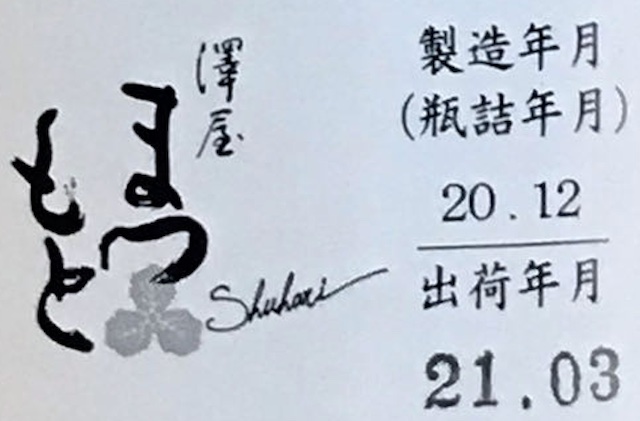 澤屋
まつ
もと
Shuhari
製造年月
(瓶詰年月)
20.12
出荷年月
21.03